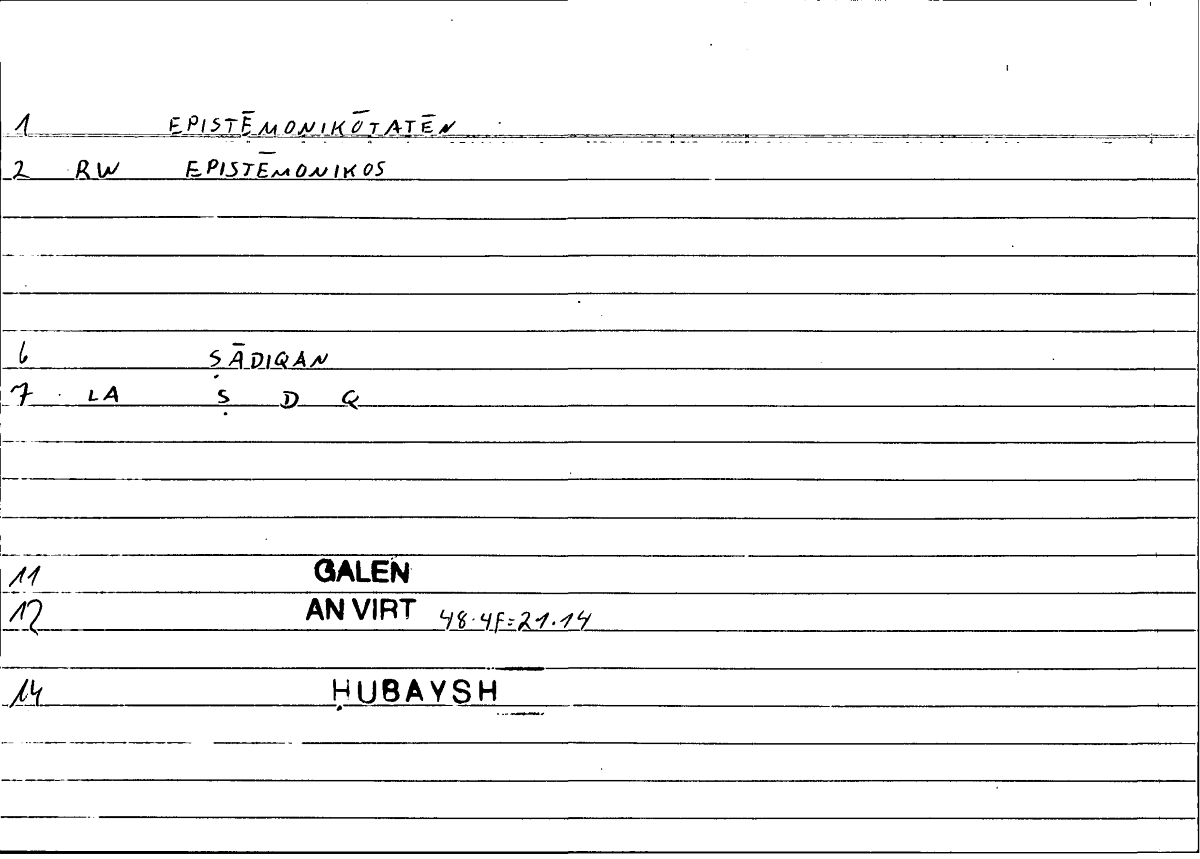 1 EPISTĒMONIKŌTATĒN
2 RW EPISTĒMONIKOS
6 ṢĀDIQAN
7 LA Ṣ D Q
11 GALEN
12 AN VIRT 48.4F=21.14
14 ḤUBAYSH